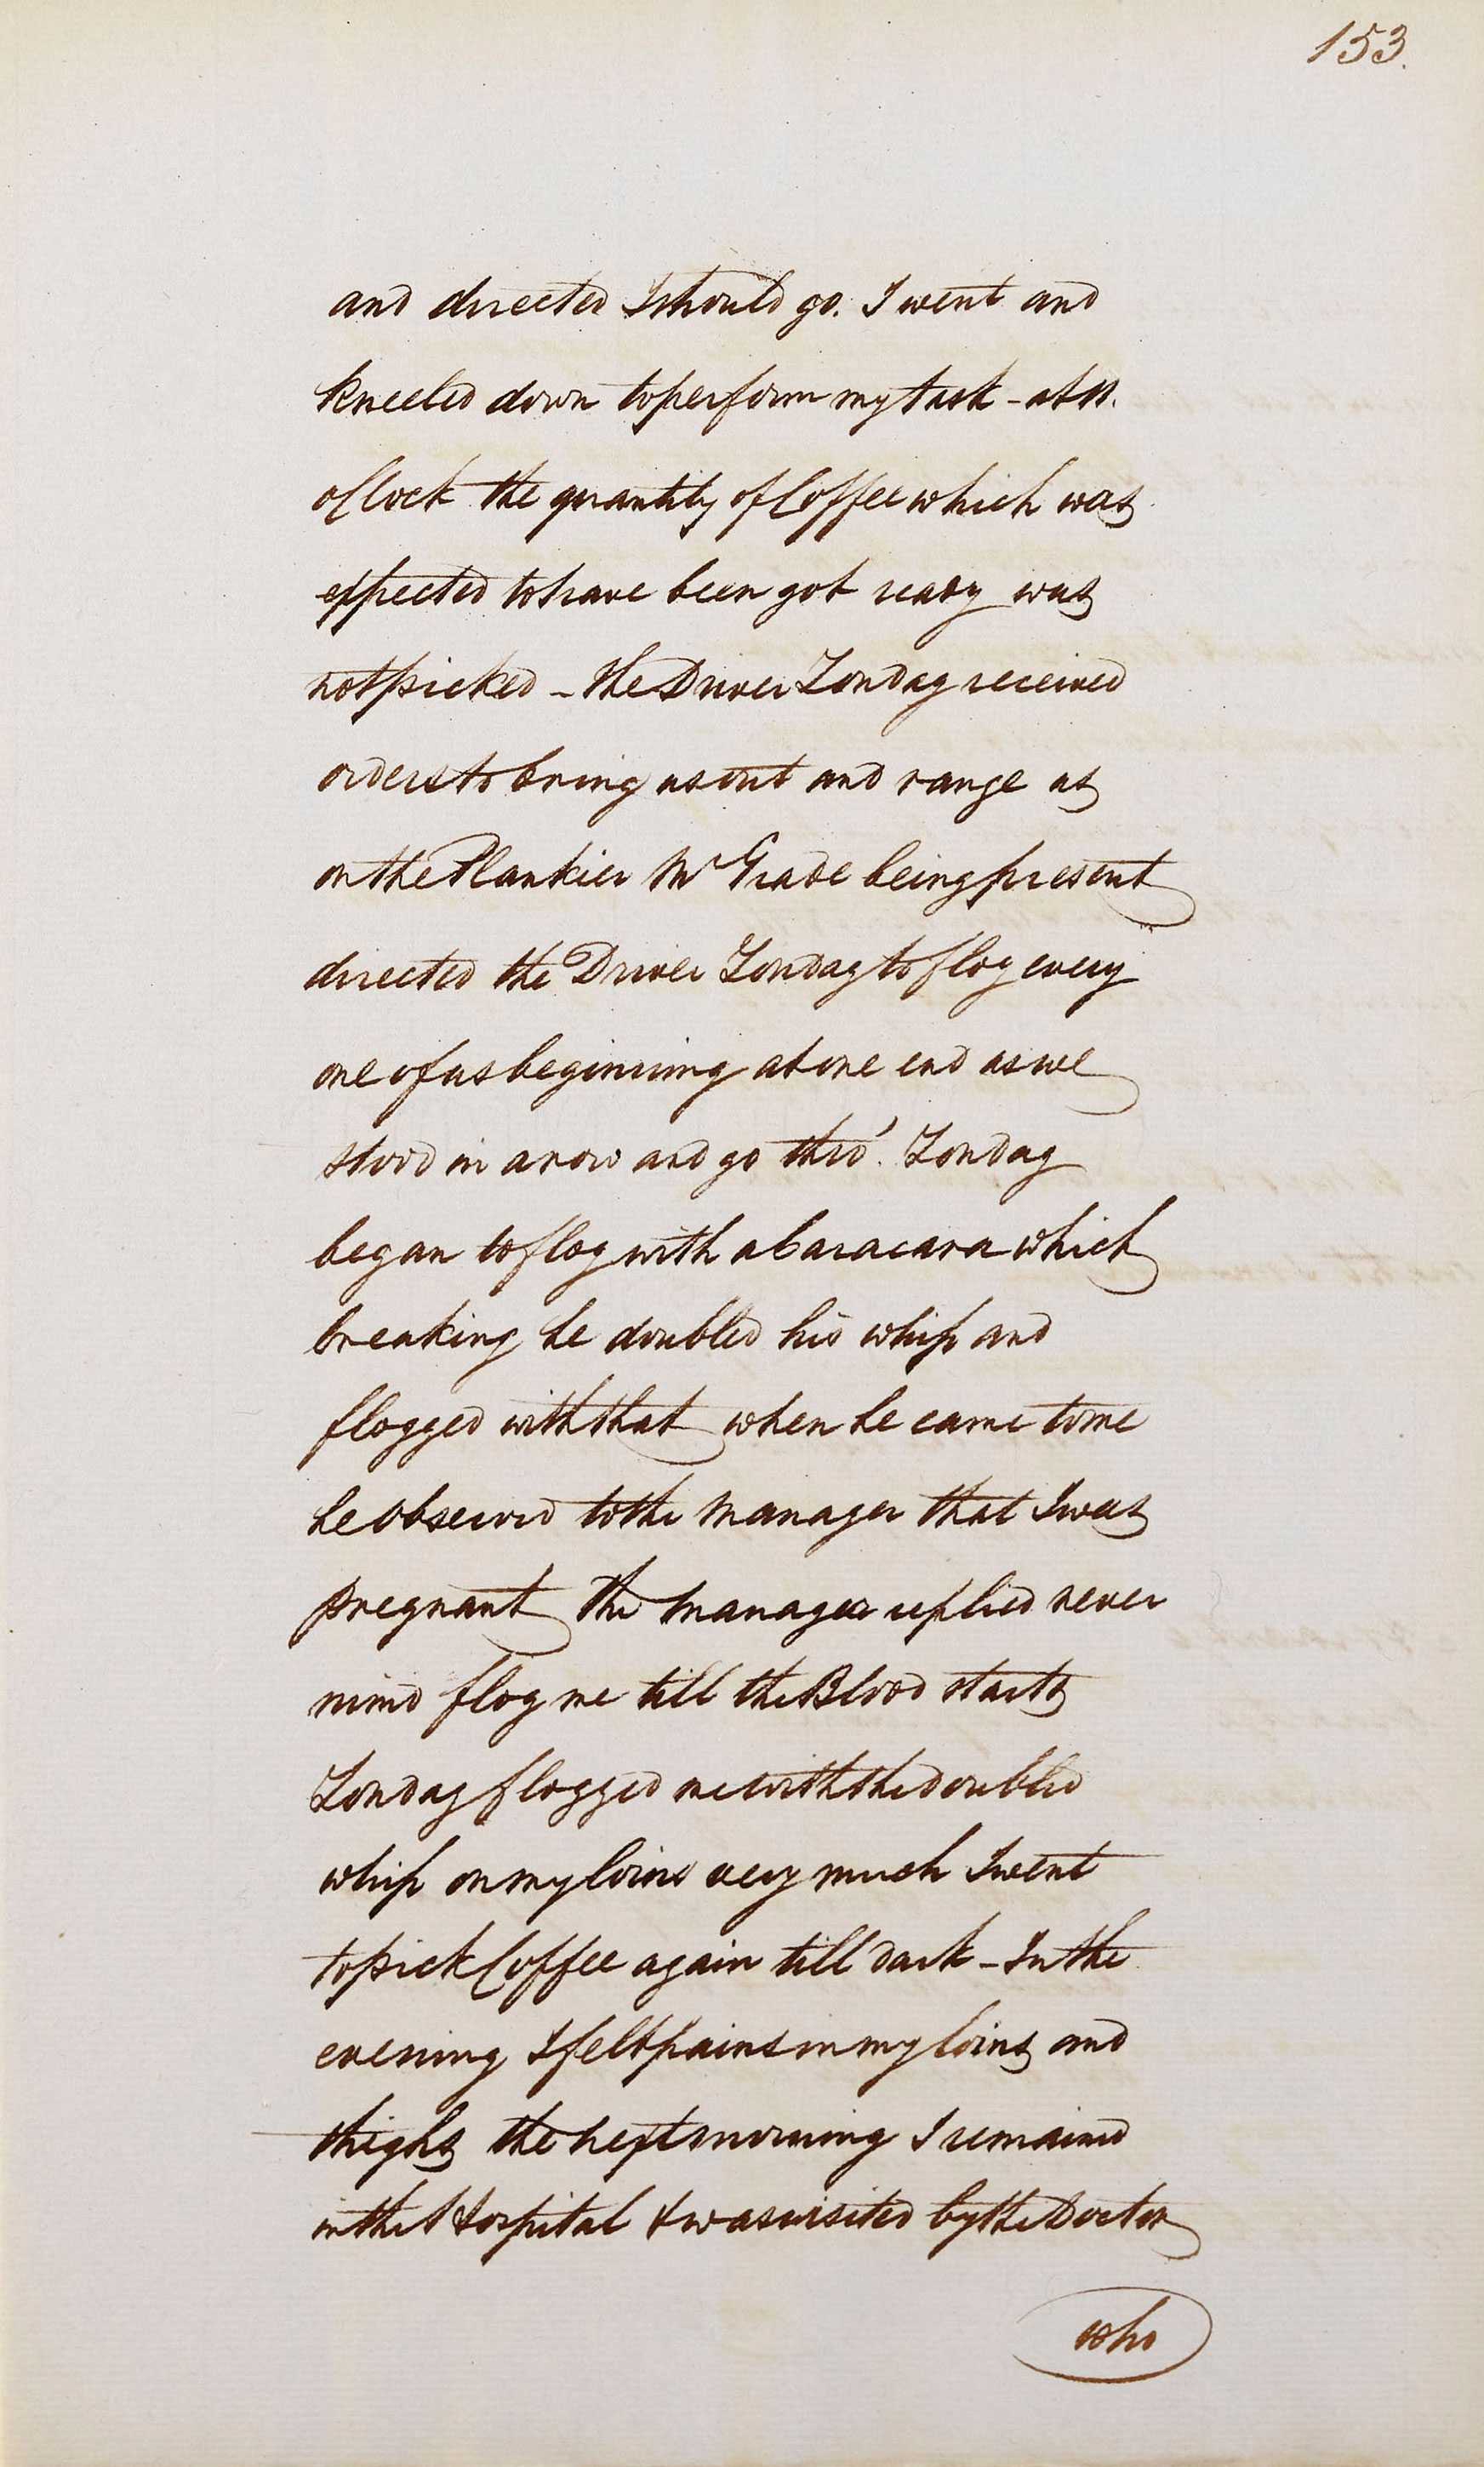 153.
and directed I should go. I went and
kneeled down to perform my task - at 11.
oClock the quantity of Coffee which was
expected to have been got ready was
not picked - the Driver Zondag received
orders to bring us out and range us
on the Plankier Mr Grade being present
directed the Driver Zondag to flog every
one of us beginning at one end as we
stood in a row and go thro'. Zondag
began to flog with a Caracara which
breaking he doubled his whip and
flogged with that when he came to me
he observed to the Manager that I was
pregnant the Manager replied never
mind flog me till the Blood starts
Zondag flogged me with the doubled
whip on my loins very much I went
to pick Coffee again till dark - In the
evening I felt pains in my loins and
thighs the next morning I remained
in the Hospital & was visited by the Doctor
who